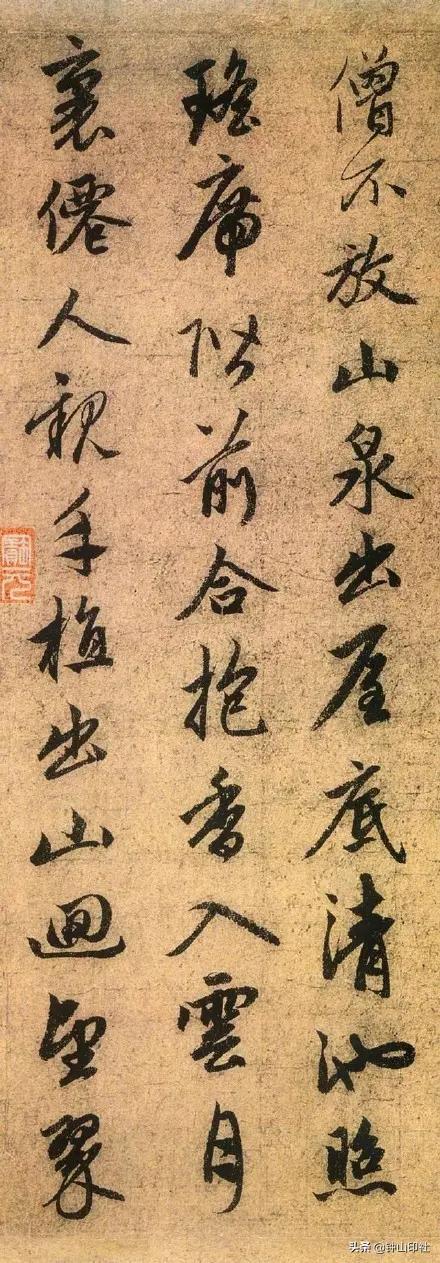 僧不放山泉出屋底清池照
瑤席階前合抱香入雲月
裏僊人親手植出山迴望翠
头条 @钟山印社